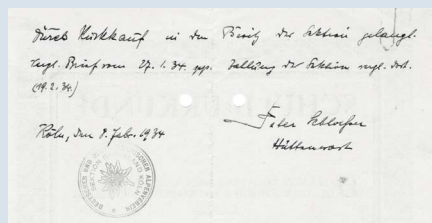 Durch Rückkauf in den Besitz der Sektion gelangt.
vergl. Brief vom 27.1.34. Zahlung der Sektion vergl.
(19.2.34)
Köln, den 8. Febr. 1934
Peter
Hüttenwart
DEUTSCHER UND ALPENVEREIN
SEKTION KÖLN